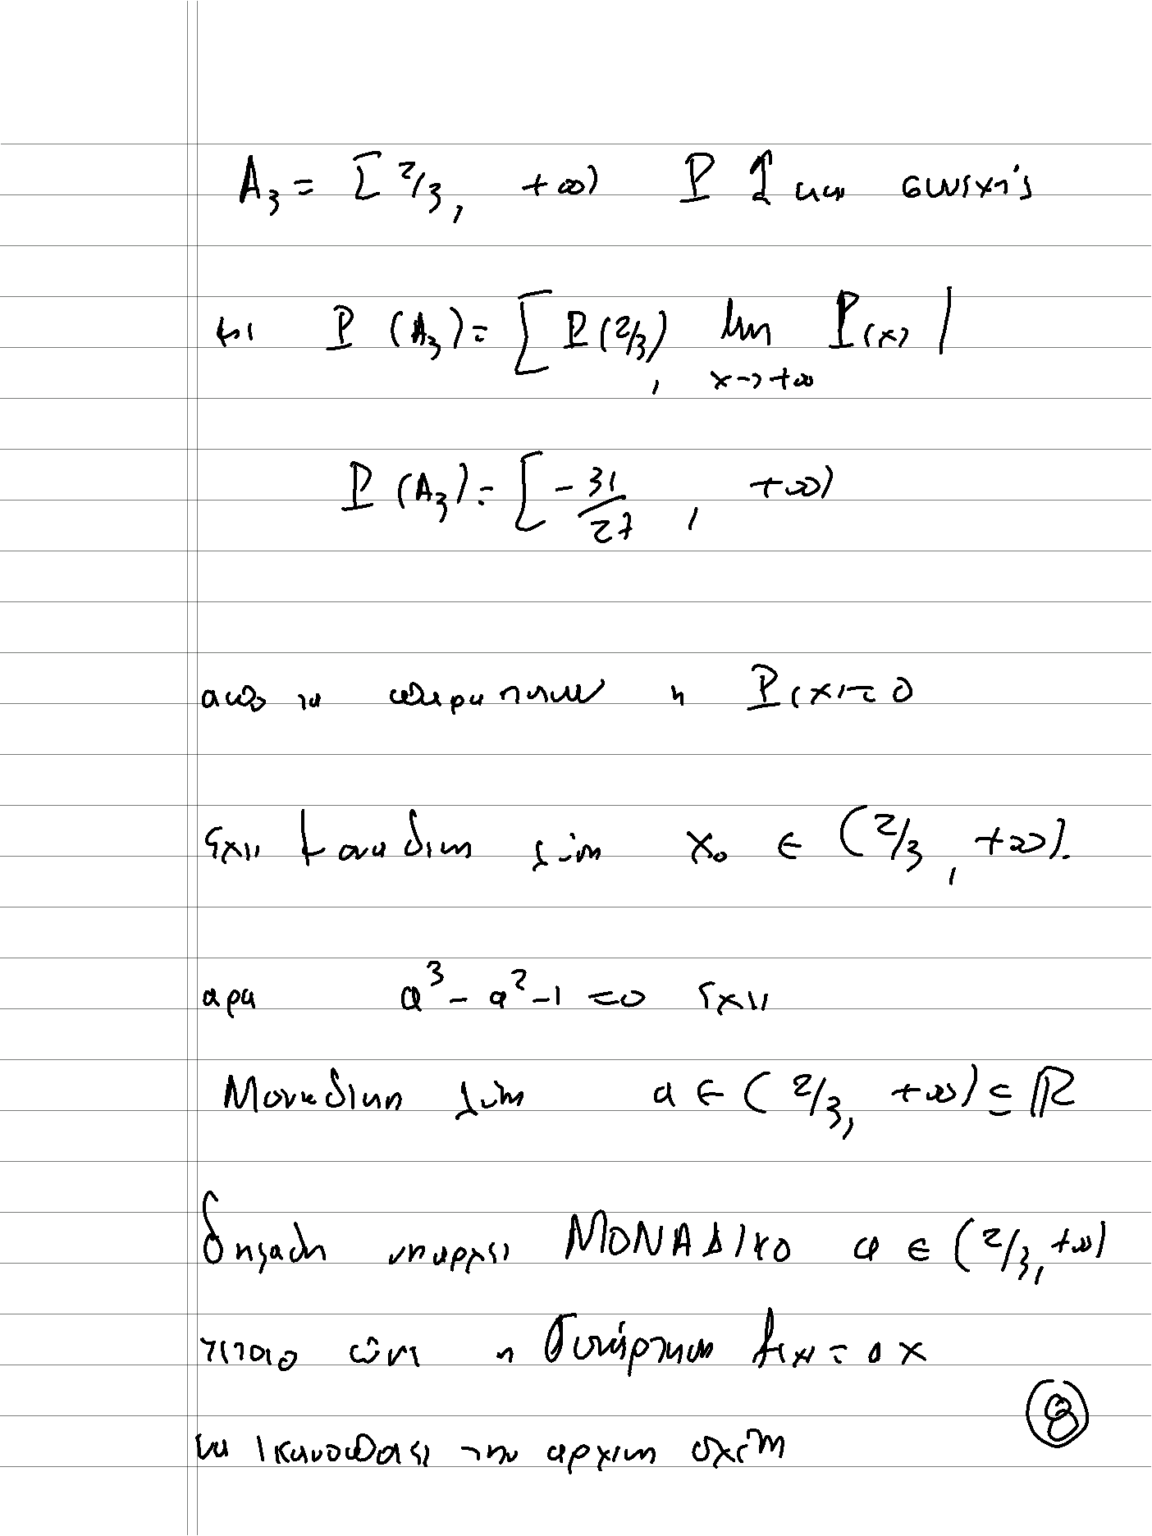 A₃ = [2/3, +∞) P ↑ και συνεχής
και P(A₃) = [P(2/3), lim P(x))
x→+∞
P(A₃) = [-31/27, +∞)
απο τα η P(x) = 0
έχει μοναδικη λύση x₀ ∈ (2/3, +∞).
αρα a³ - a² - 1 = 0 έχει
Μοναδικη λύση a ∈ (2/3, +∞) ⊆ ℝ
δηλαδη υπαρχει ΜΟΝΑΔΙΚΟ a ∈ (2/3, +∞)
τετοιο ώστε η συνάρτηση f(x) = ax
να ικανοποιει την αρχικη σχεση
8